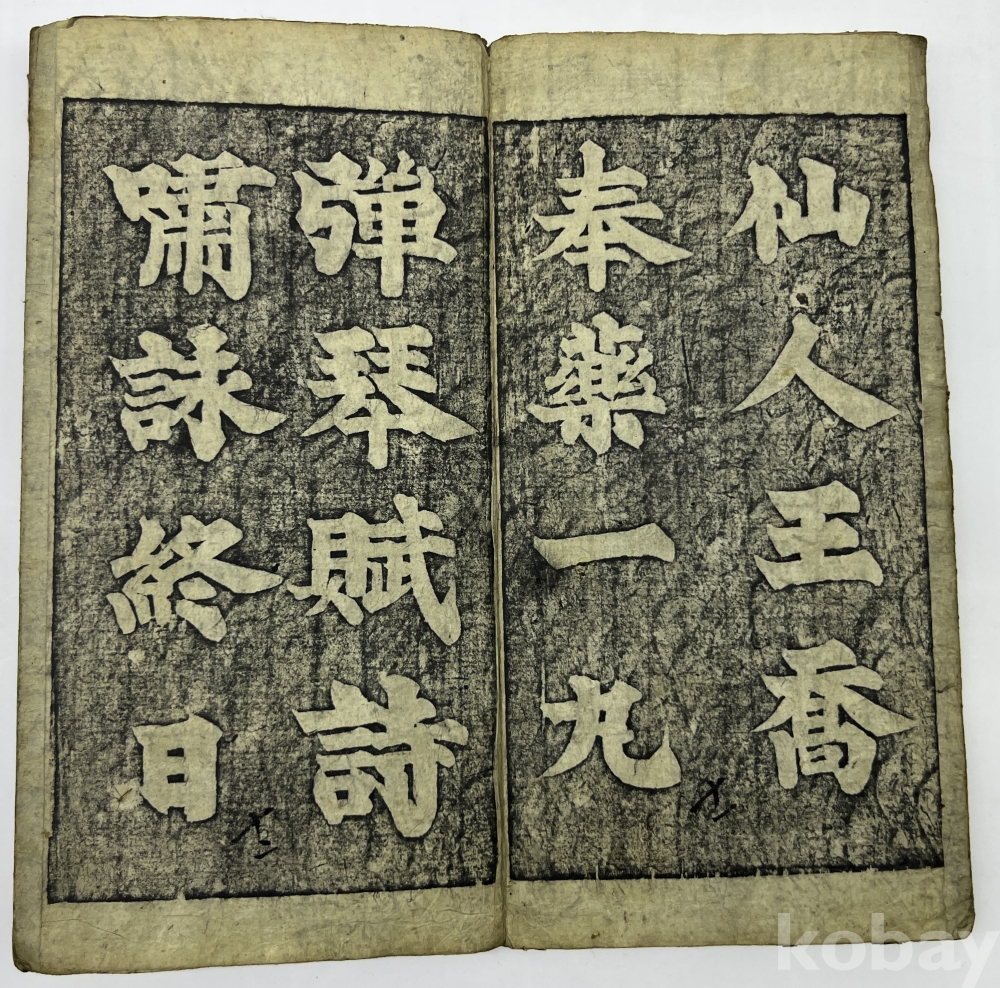 仙人王喬
奉藥一丸
彈琴賦詩
嘯詠終日
kobay